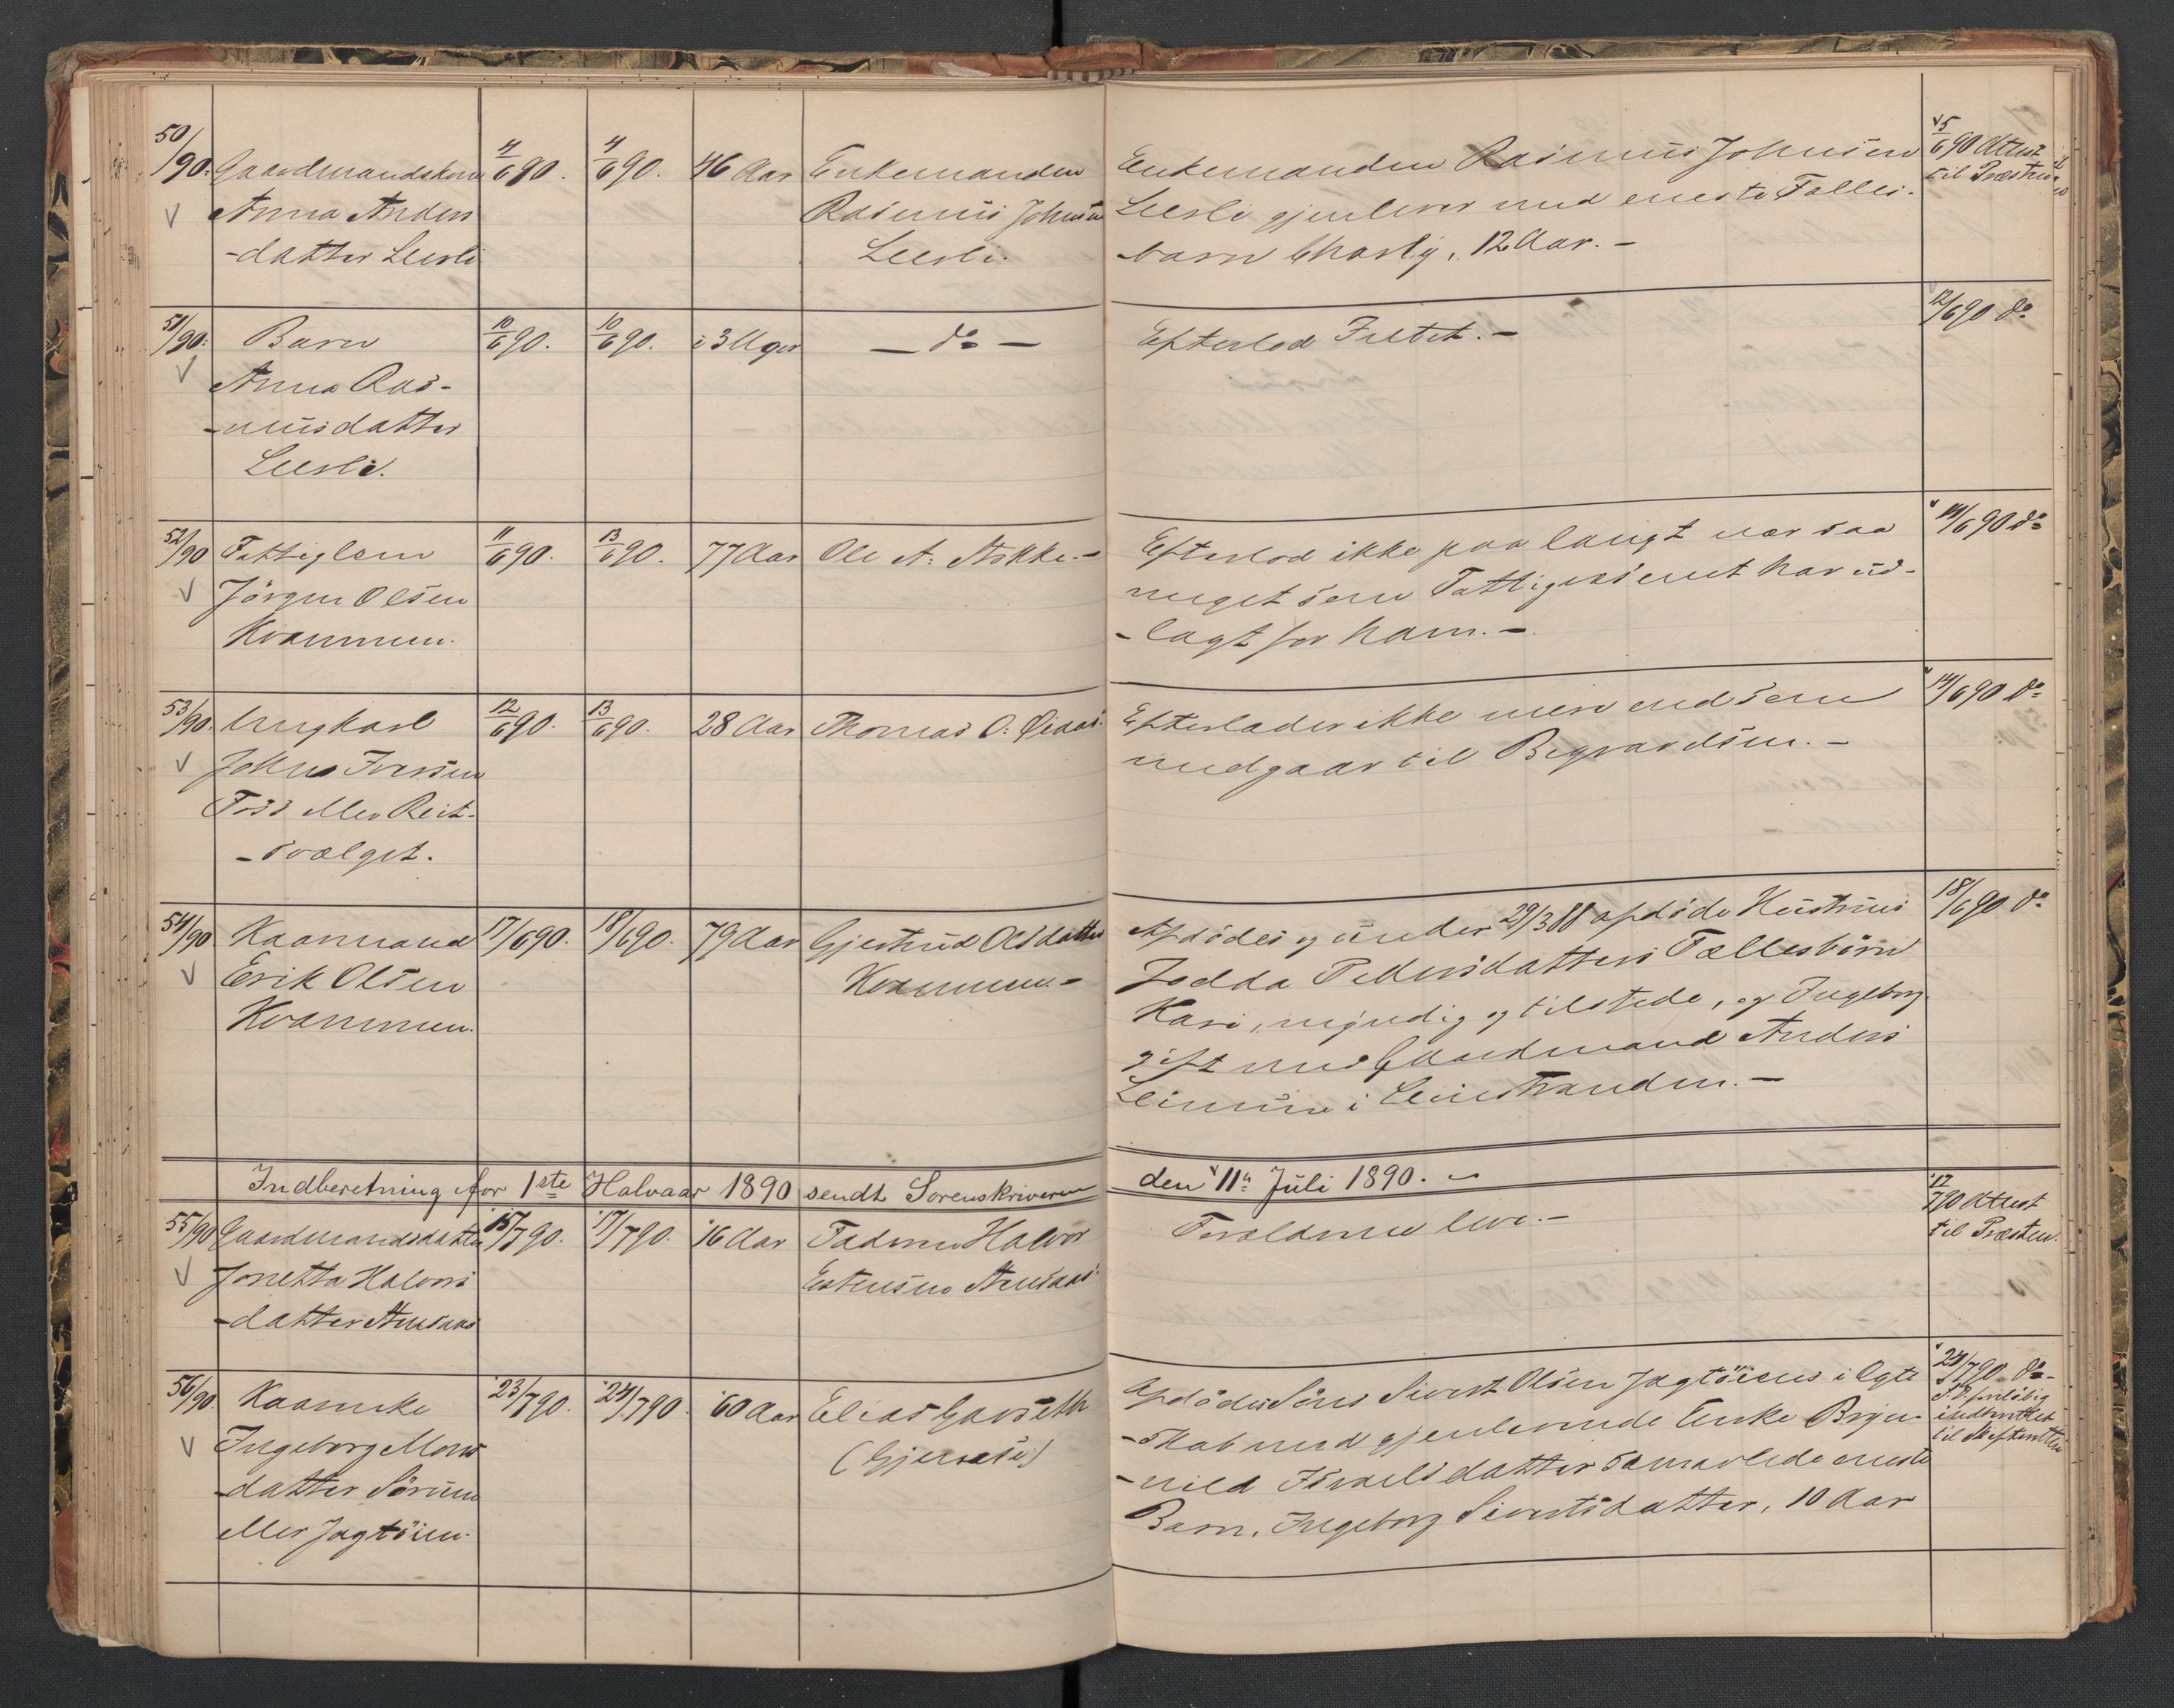 50/90. Gaardmandskone 4/6 90. 4/6 90. 46 Aar Enkemanden Enkemanden Rasmus Johnsen 5/6 90 Attest
Anna Anders Rasmus Johnsen Leerli gjenlever med eneste Fælles- til Præsten
-datter Leerli Leerli. barn Charly, 12 Aar. -
51/90: Barn 10/6 90. 10/6 90. i 3 Uger — do — Efterlod Intet. - 12/6 90 do
Anna Ras-
-musdatter
Leerli.
52/90 Fattiglem 11/6 90. 13/6 90. 77 Aar Ole A. Efterlod ikke paa langt nær saa 14/6 90 do
Jörgen Olsen meget som Fattigvæsenet har ud-
Kvammen. -lagt for ham. -
53/90. Ungkarl 12/6 90. 13/6 90. 28 Aar Thomas O. Efterlader ikke mere end som 14/6 90 do
Johns Iversen medgaar til Begravelsen. -
Foss eller Reit-
-svælget.
54/90 Kaarmand 17/6 90. 18/6 90. 79 Aar Gjertrud Olsdatter Afdödes og under 29/3 88 afdöde Hustrus 18/6 90 do
Erik Olsen Kvammen. - Pedersdatters Fællesbörn
Kvammen. Kari, myndig og tilstede, og Ingeborg
gift med Gaardmand Anders
i Leinstranden. -
Indberetning for 1ste Halvaar 1890 sendt Sorenskriveren den 11te Juli 1890.
55/90 Gaardmandsdatter 15/7 90. 17/7 90. 16 Aar Faderen Halvor Forældrene leve. - 17/7 90 Attest
Jonetta Halvors Estensen Aunsaas til Præsten.
-datter Aunsaas
56/90 Kaarenke 23/7 90. 24/7 90. 60 Aar Elias Garseth Afdödes Söns Sivert Olsen Jagtöiens i Ægte 24/7 90 do -
Ingeborg Mons -skab med gjenlevende Enke Bryn- foreløbig
-datter Sörum -hild Israelsdatter samavlede eneste indberettet
eller Jagtöien. Barn, Ingeborg Sivertsdatter, 10 Aar til Skifteretten